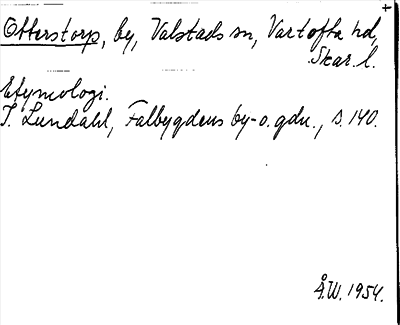 Otterstorp, by, Valstads sn, Vartofta hd,
Skar. l.
Etymologi.
I. Lundahl, Falbygdens by- o. gdn., s. 140.
Å.W. 1954.